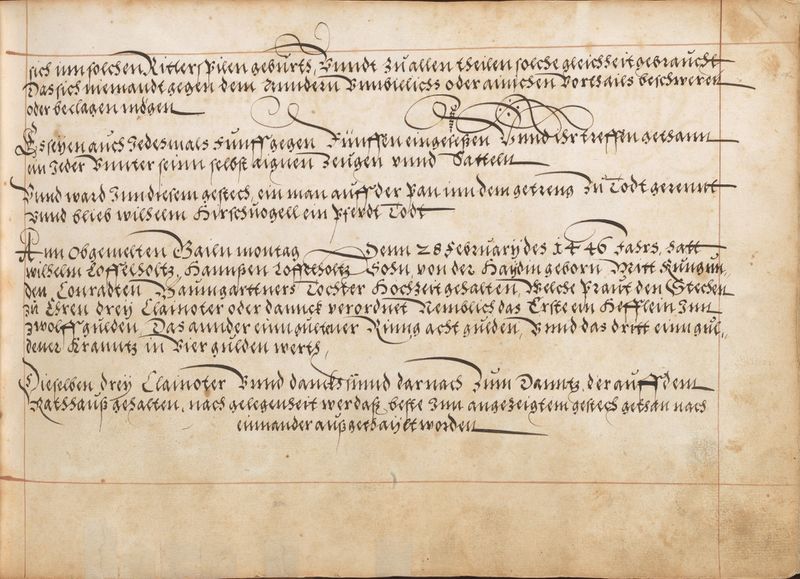 sich inn solchen Ritterspilen gebürth, Vnndt zu allen theilen solche gleichheit gebraucht
Das sich niemandt gegen dem Anndern Vnnbillichs oder ainichen Vorthails beschweren
oder beclagen mögen
Es seyen auch Jedesmals Funff gegen Fünffen eingelaßen Vnnd Ihr treffen gethann
ein Jeder Vnnter seinn selbst aignen Zeugen vnnd Satteln
Vnnd ward Inn diesem gestech, ein man auff der Pan inn dem getreng zu Todt gerennt
Vnnd blieb wilhelm Hirschuogell ein Pferdt Todt
Ann Obgemelten Gailn montag Denn 28 February des 1446 Jahrs, hatt
wilhelm Löffelholtz, Hannßen Löffelholtz Sohn, von der Haydin geborn Mitt Kungun,,
den Conradten Baumgarttners Tochter Hochzeit gehalten, Welche Praut den Stechen
zu Ehren drey Clainoter oder danck verordnet Nemblich das Erste ein Hefftlein Inn
zwölff gulden, Das annder einn guldener Rinng acht gulden, Vnnd das dritt einn gul,,
dener Kranntz in Vier gulden werth,
Dieselben drey Clainoter Vnnd danckh sinnd darnach Zum Danntz, der auff dem
Rathhauß gehalten, nach gelegenheit wer das beste Inn angezeigtem gestech gethan nach
einnander außgethaylt worden